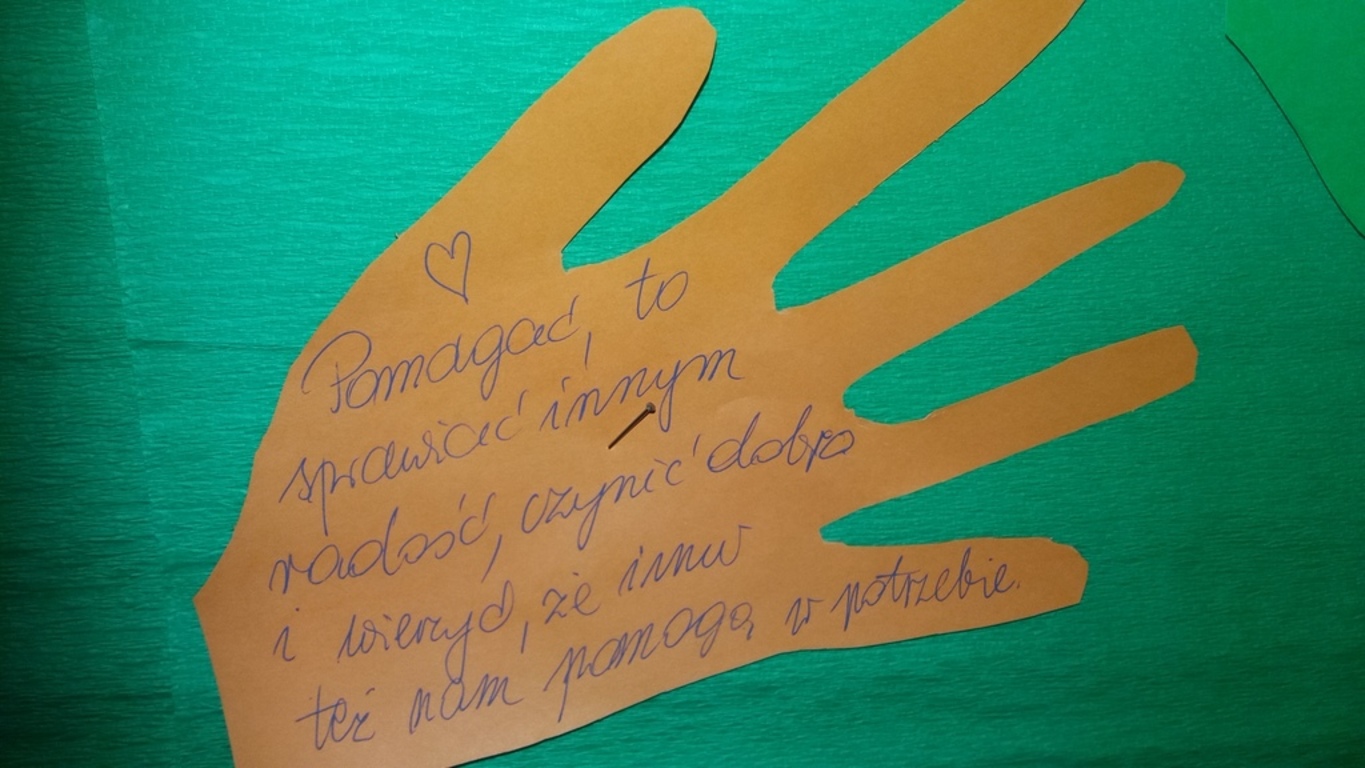 Pomagać, to
sprawiać innym
radość, czynić dobro
i wierzyć, że inni
też nam pomogą w potrzebie.